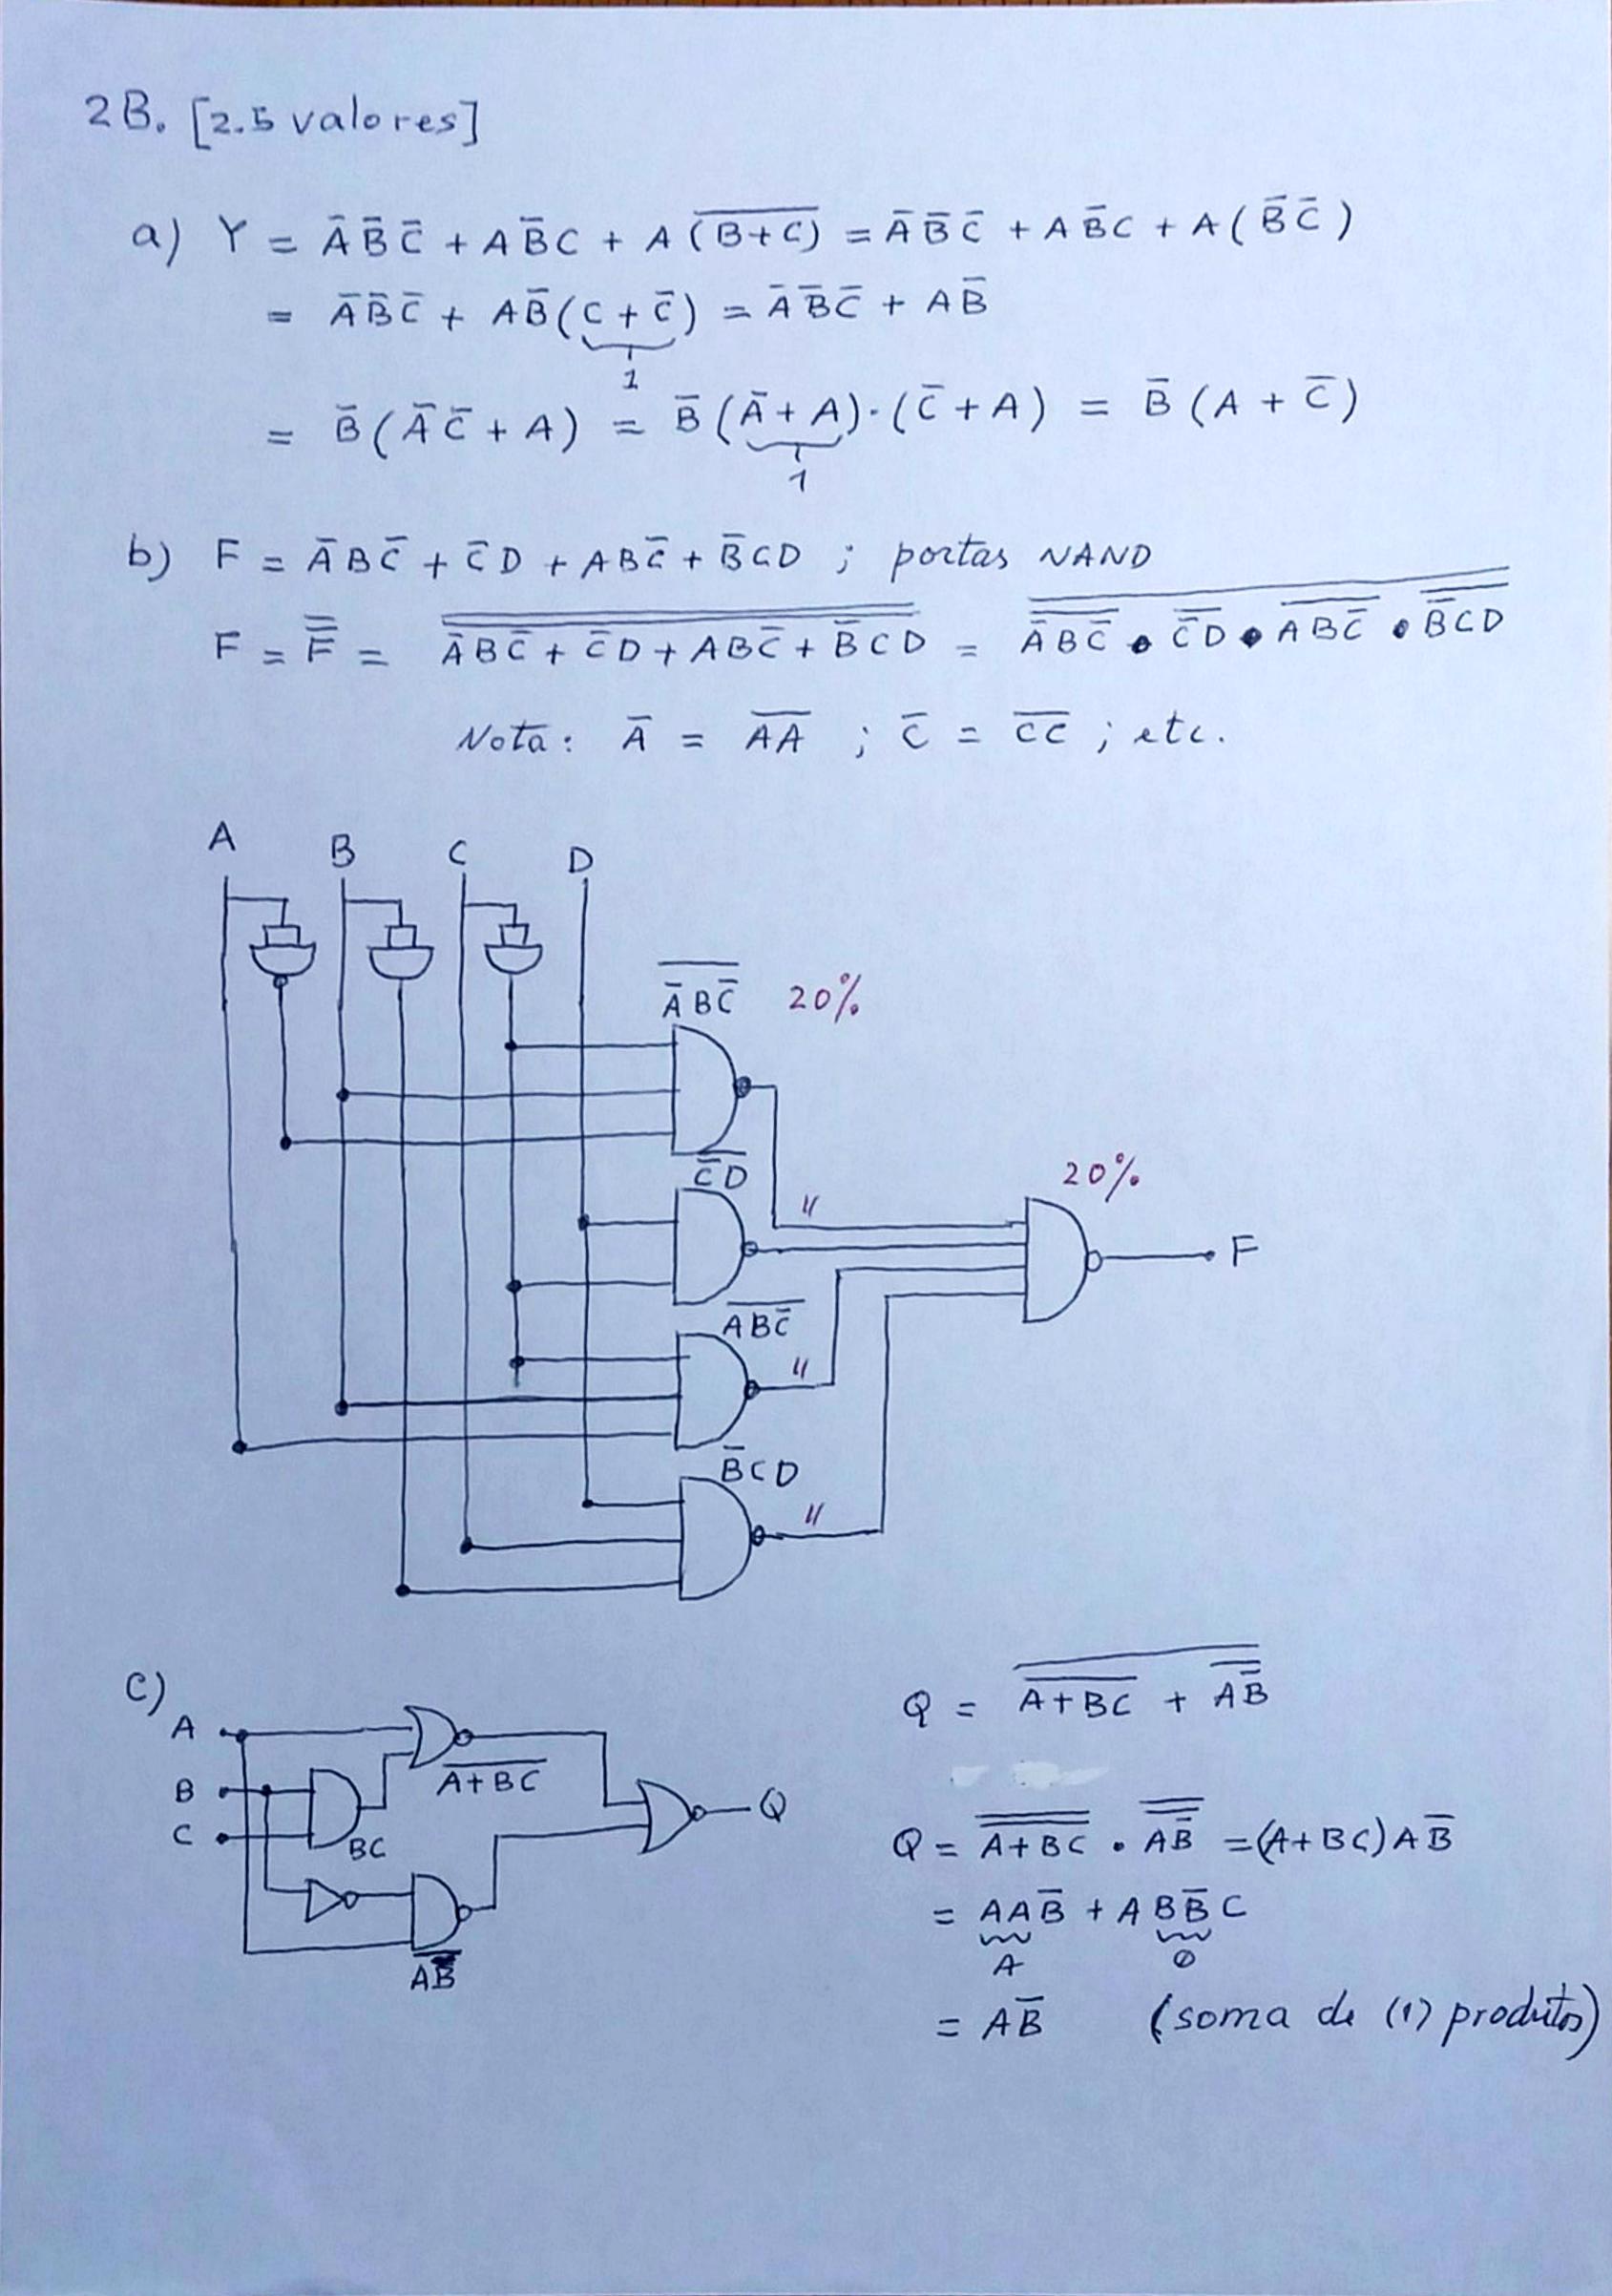 2B. [2.5 valores]
a) Y = A̅ B̅ C̅ + A B̅ C + A (B̅+̅C̅) = A̅ B̅ C̅ + A B̅ C + A ( B̅ C̅ )
= A̅ B̅ C̅ + A B̅ ( C + C̅ ) = A̅ B̅ C̅ + A B̅
1
= B̅ ( A̅ C̅ + A ) = B̅ ( A̅ + A ) · ( C̅ + A ) = B̅ ( A + C̅ )
1
b) F = A̅ B C̅ + C̅ D + A B C̅ + B̅ C D ; portas NAND
F = F̿ = \overline{\overline{A̅ B C̅ + C̅ D + A B C̅ + B̅ C D}} = \overline{\overline{\overline{A̅ B C̅} • \overline{C̅ D} • \overline{A B C̅} • \overline{B̅ C D}}}
Nota: A̅ = \overline{AA} ; C̅ = \overline{CC} ; etc.
A B C D
\overline{A̅ B C̅} 20%
\overline{C̅ D}
20%
"
F
\overline{A B C̅}
"
B̅ C D
"
c)
A
\overline{A+BC}
B
C
BC
Q
\overline{AB̅}
Q = \overline{\overline{A+BC} + \overline{AB̅}}
Q = \overline{\overline{A+BC}} • \overline{\overline{AB̅}} = (A+BC) A B̅
= A A B̅ + A B B̅ C
A 0
= A B̅ (soma de (1) produtos)